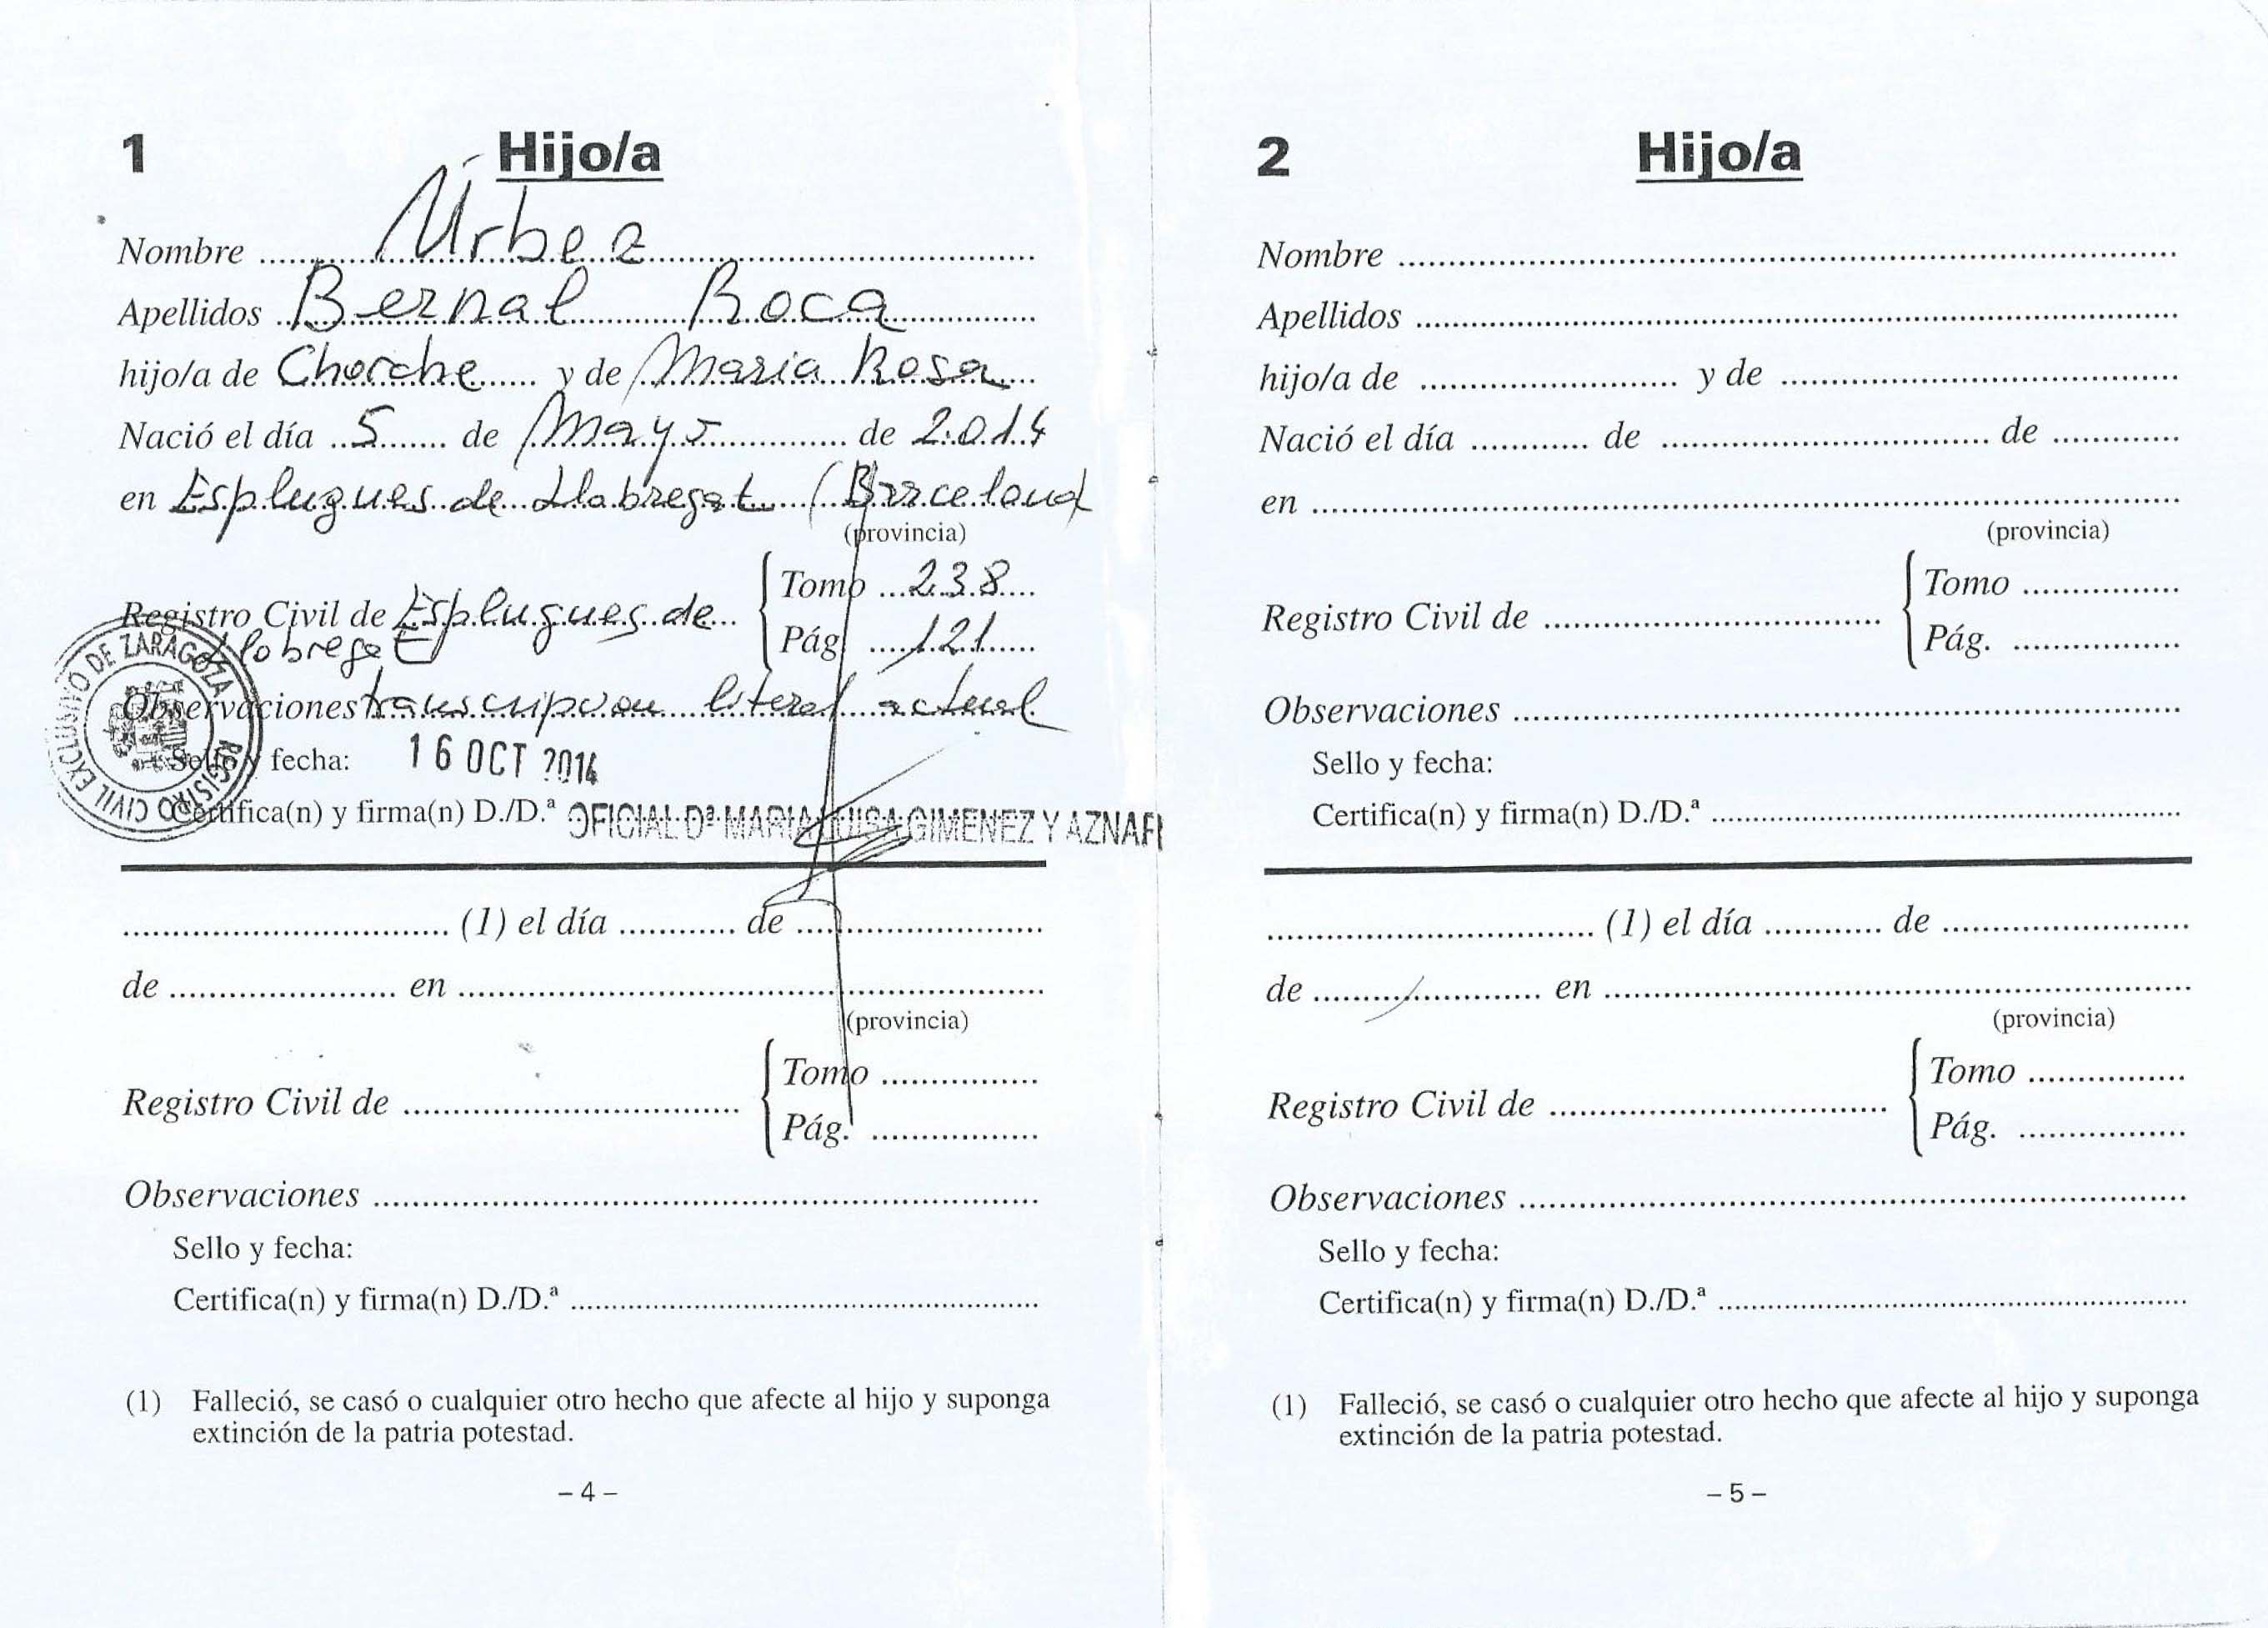 1 Hijo/a
Nombre Úrbez
Apellidos Bernal Roca
hijo/a de Chorche y de Maria Rosa
Nació el día 5 de Mayo de 2.014
en Esplugues de Llobregat (Barcelona
(provincia)
Registro Civil de Esplugues de Llobregat
Tomo 238
Pág. 121
Observaciones transcripcion literal actual
Sello y fecha: 16 OCT 2014
Certifica(n) y firma(n) D./D.ª OFICIAL Dª MARIA LUISA GIMENEZ Y AZNAR
REGISTRO CIVIL EXCLUSIVO DE ZARAGOZA
(1) el día de
de en
(provincia)
Registro Civil de
Tomo
Pág.
Observaciones
Sello y fecha:
Certifica(n) y firma(n) D./D.ª
(1) Falleció, se casó o cualquier otro hecho que afecte al hijo y suponga
extinción de la patria potestad.
– 4 –
2 Hijo/a
Nombre
Apellidos
hijo/a de y de
Nació el día de de
en
(provincia)
Registro Civil de
Tomo
Pág.
Observaciones
Sello y fecha:
Certifica(n) y firma(n) D./D.ª
(1) el día de
de en
(provincia)
Registro Civil de
Tomo
Pág.
Observaciones
Sello y fecha:
Certifica(n) y firma(n) D./D.ª
(1) Falleció, se casó o cualquier otro hecho que afecte al hijo y suponga
extinción de la patria potestad.
– 5 –